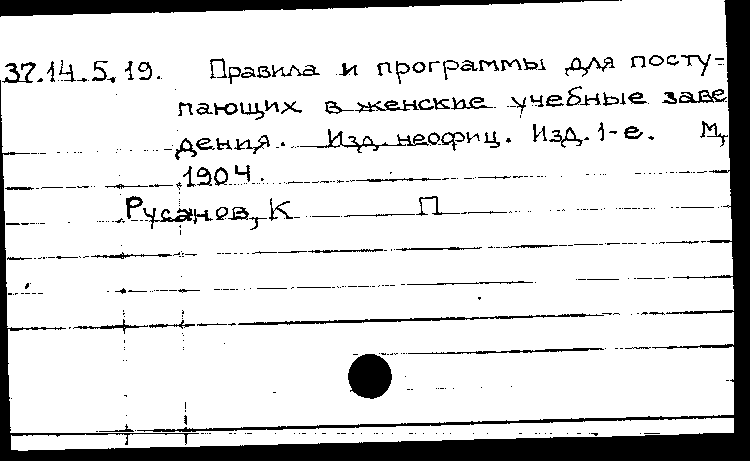 37.14.5.19. Правила и программы для посту-
пающих в женские учебные заве
дения. Изд. неофиц. Изд. 1-е. М,
1904.
Русанов, К П